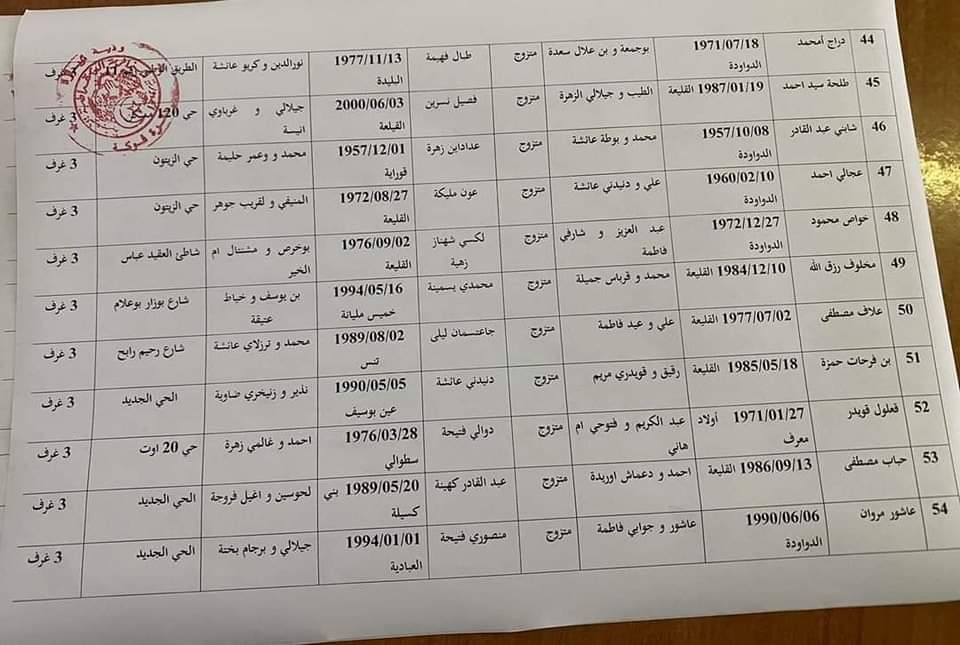 44 دراج أمحمد 1971/07/18 الدواودة بوجمعة و بن علال سعدة متزوج طبال فهيمة 1977/11/13 البليدة نورالدين و كربو عائشة الطريق الوطني رقم 3 غرف
45 طلحة سيد احمد 1987/01/19 القليعة الطيب و جيلالي الزهرة متزوج فصيل نسرين 2000/06/03 القيلعة جيلالي و غرباوي انيسة حي 120 مسكن 3 غرف
46 شابني عبد القادر 1957/10/08 الدواودة محمد و بوطة عائشة متزوج عدادابن زهرة 1957/12/01 قوراية محمد و وعمر حليمة حي الزيتون 3 غرف
47 عجالي احمد 1960/02/10 الدواودة علي و دنيدني عائشة متزوج عون مليكة 1972/08/27 القليعة المنيفي و لقريب جوهر حي الزيتون 3 غرف
48 خواص محمود 1972/12/27 الدواودة عبد العزيز و شارفي فاطمة متزوج لكسي شهناز زهية 1976/09/02 القليعة بوخرص و مشنتال ام الخير شاطئ العقيد عباس 3 غرف
49 مخلوف رزق الله 1984/12/10 القليعة محمد و قرباس جميلة متزوج محمدي يسمينة 1994/05/16 خميس مليانة بن يوسف و خياط عتيقة شارع بوزار بوعلام 3 غرف
50 علاف مصطفى 1977/07/02 القليعة علي و عيد فاطمة متزوج جاعتسمان ليلى 1989/08/02 تنس محمد و ترزلاي عائشة شارع رحيم رابح 3 غرف
51 بن فرحات حمزة 1985/05/18 القليعة رقيق و قويدري مريم متزوج دنيدني عائشة 1990/05/05 عين بوسيف نذير و زنيخري ضاوية الحي الجديد 3 غرف
52 فعلول قويدر 1971/01/27 أولاد معرف عبد الكريم و فتوحي ام هاني متزوج دوالي فتيحة 1976/03/28 سطوالي احمد و غالمي زهرة حي 20 اوت 3 غرف
53 حباب مصطفى 1986/09/13 القليعة احمد و دعماش اوريدة متزوج عبد القادر كهينة 1989/05/20 بني كسيلة لحوسين و اغيل فروجة الحي الجديد 3 غرف
54 عاشور مروان 1990/06/06 الدواودة عاشور و جوابي فاطمة متزوج منصوري فتيحة 1994/01/01 العبادية جيلالي و برجام بختة الحي الجديد 3 غرف